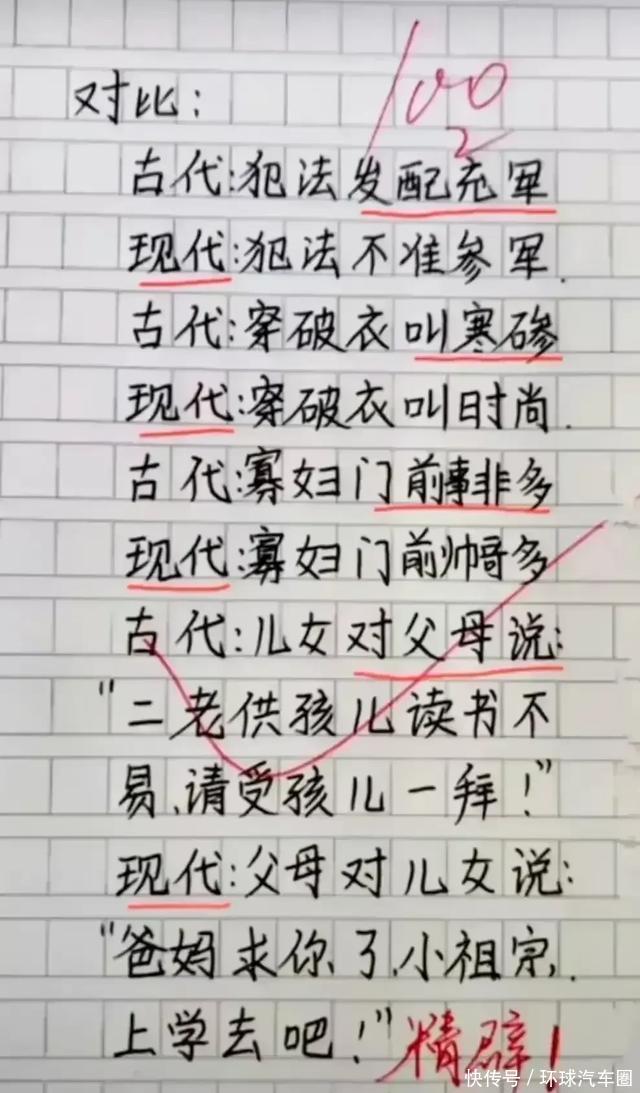 100
对比:
古代:犯法发配充军
现代:犯法不准参军.
古代:穿破衣叫寒碜
现代:穿破衣叫时尚.
古代:寡妇门前事非多
现代:寡妇门前帅哥多
古代:儿女对父母说:
"二老供孩儿读书不
易、请受孩儿一拜!"
现代:父母对儿女说:
"爸妈求你了、小祖宗、
上学去吧!"
精辟!
快传号/环球汽车圈